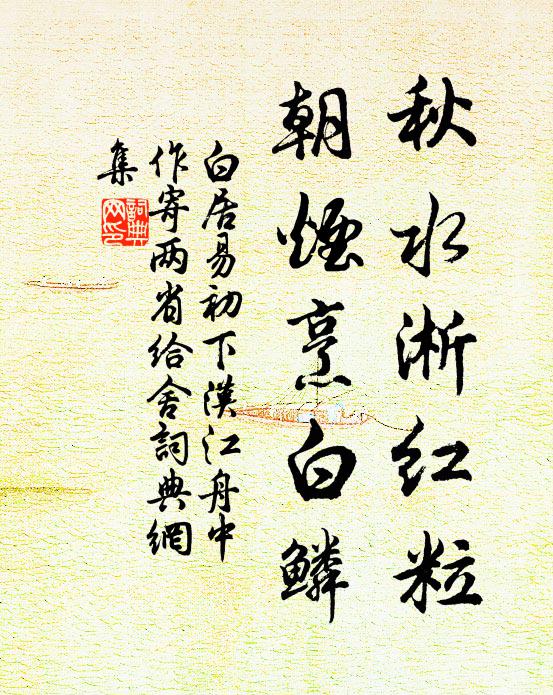 秋水淅红粒
朝烟烹白鳞
白居易初下漢江舟中
作寄两省给舍詞典網
集
詞典网印